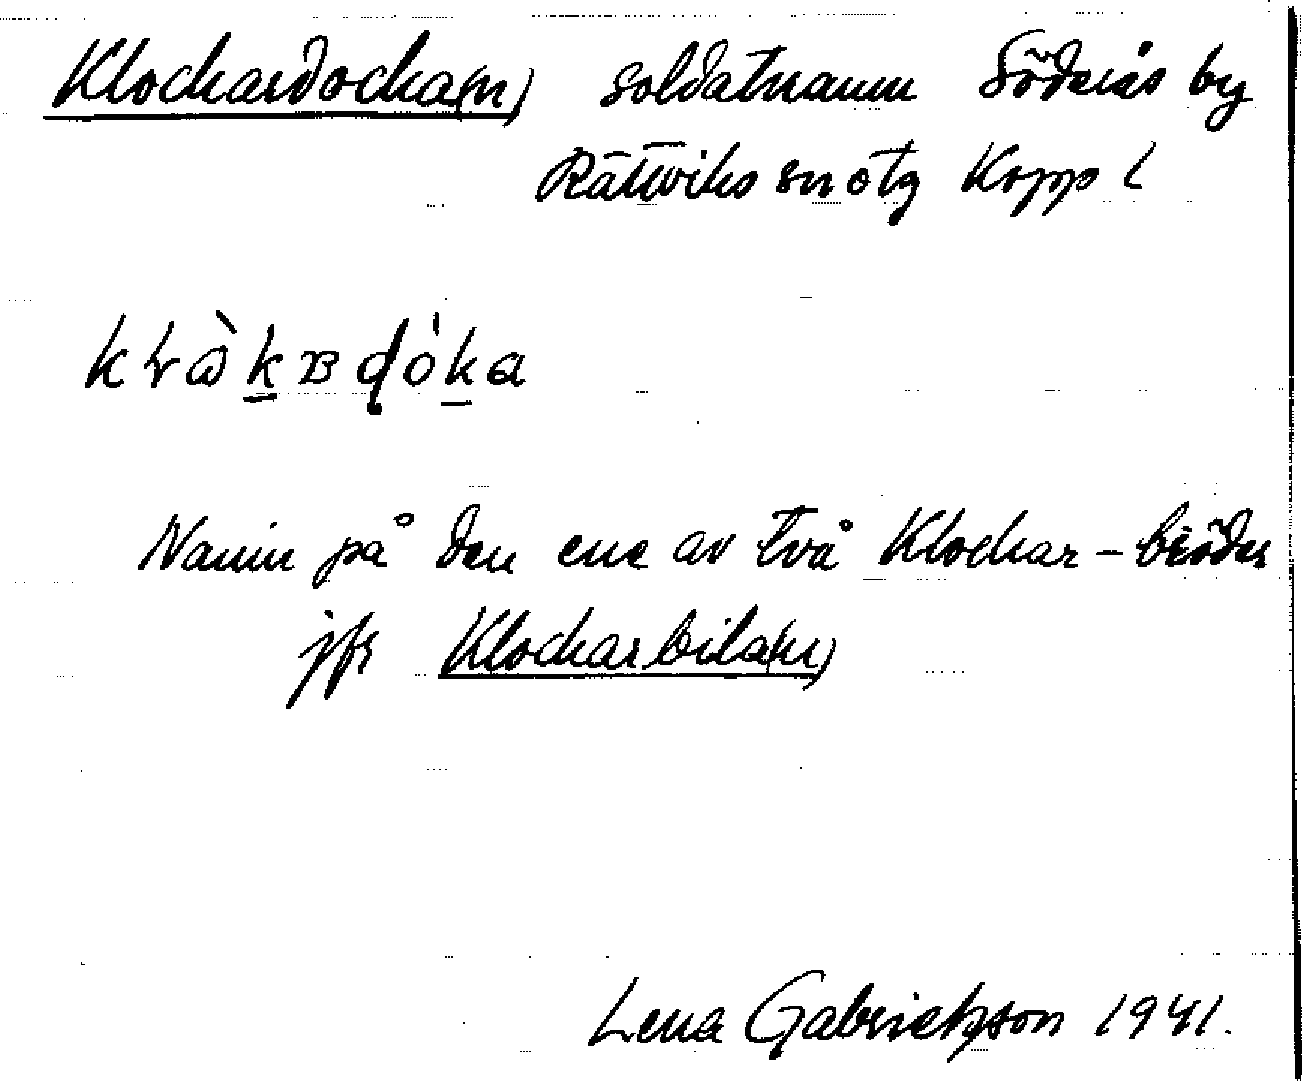 Klockardocka(n) soldatnamn Söderås by
Rättviks sn o tg Kopp l
Namn på den ene av två Klockar-bröder
jfr Klockarbila(n)
Lena Gabrielsson 1941.